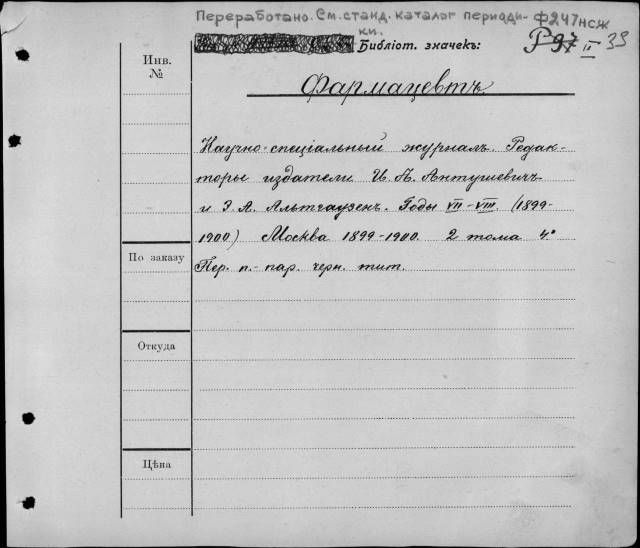 Переработано. См. станд. каталог периоди- Ф247нсж
ки.
Библіот. значекъ: Р97 II 39
Инв.
№
Фармацевтъ.
Научно-спеціальный журналъ. Редак-
торы издатели И. А. Антушевичъ
и З. А. Альтгаузенъ. Годы VII-VIII. (1899-
1900) Москва 1899-1900. 2 тома 4°
По заказу
Пер. п.-пар. черн. тит.
Откуда
Цѣна